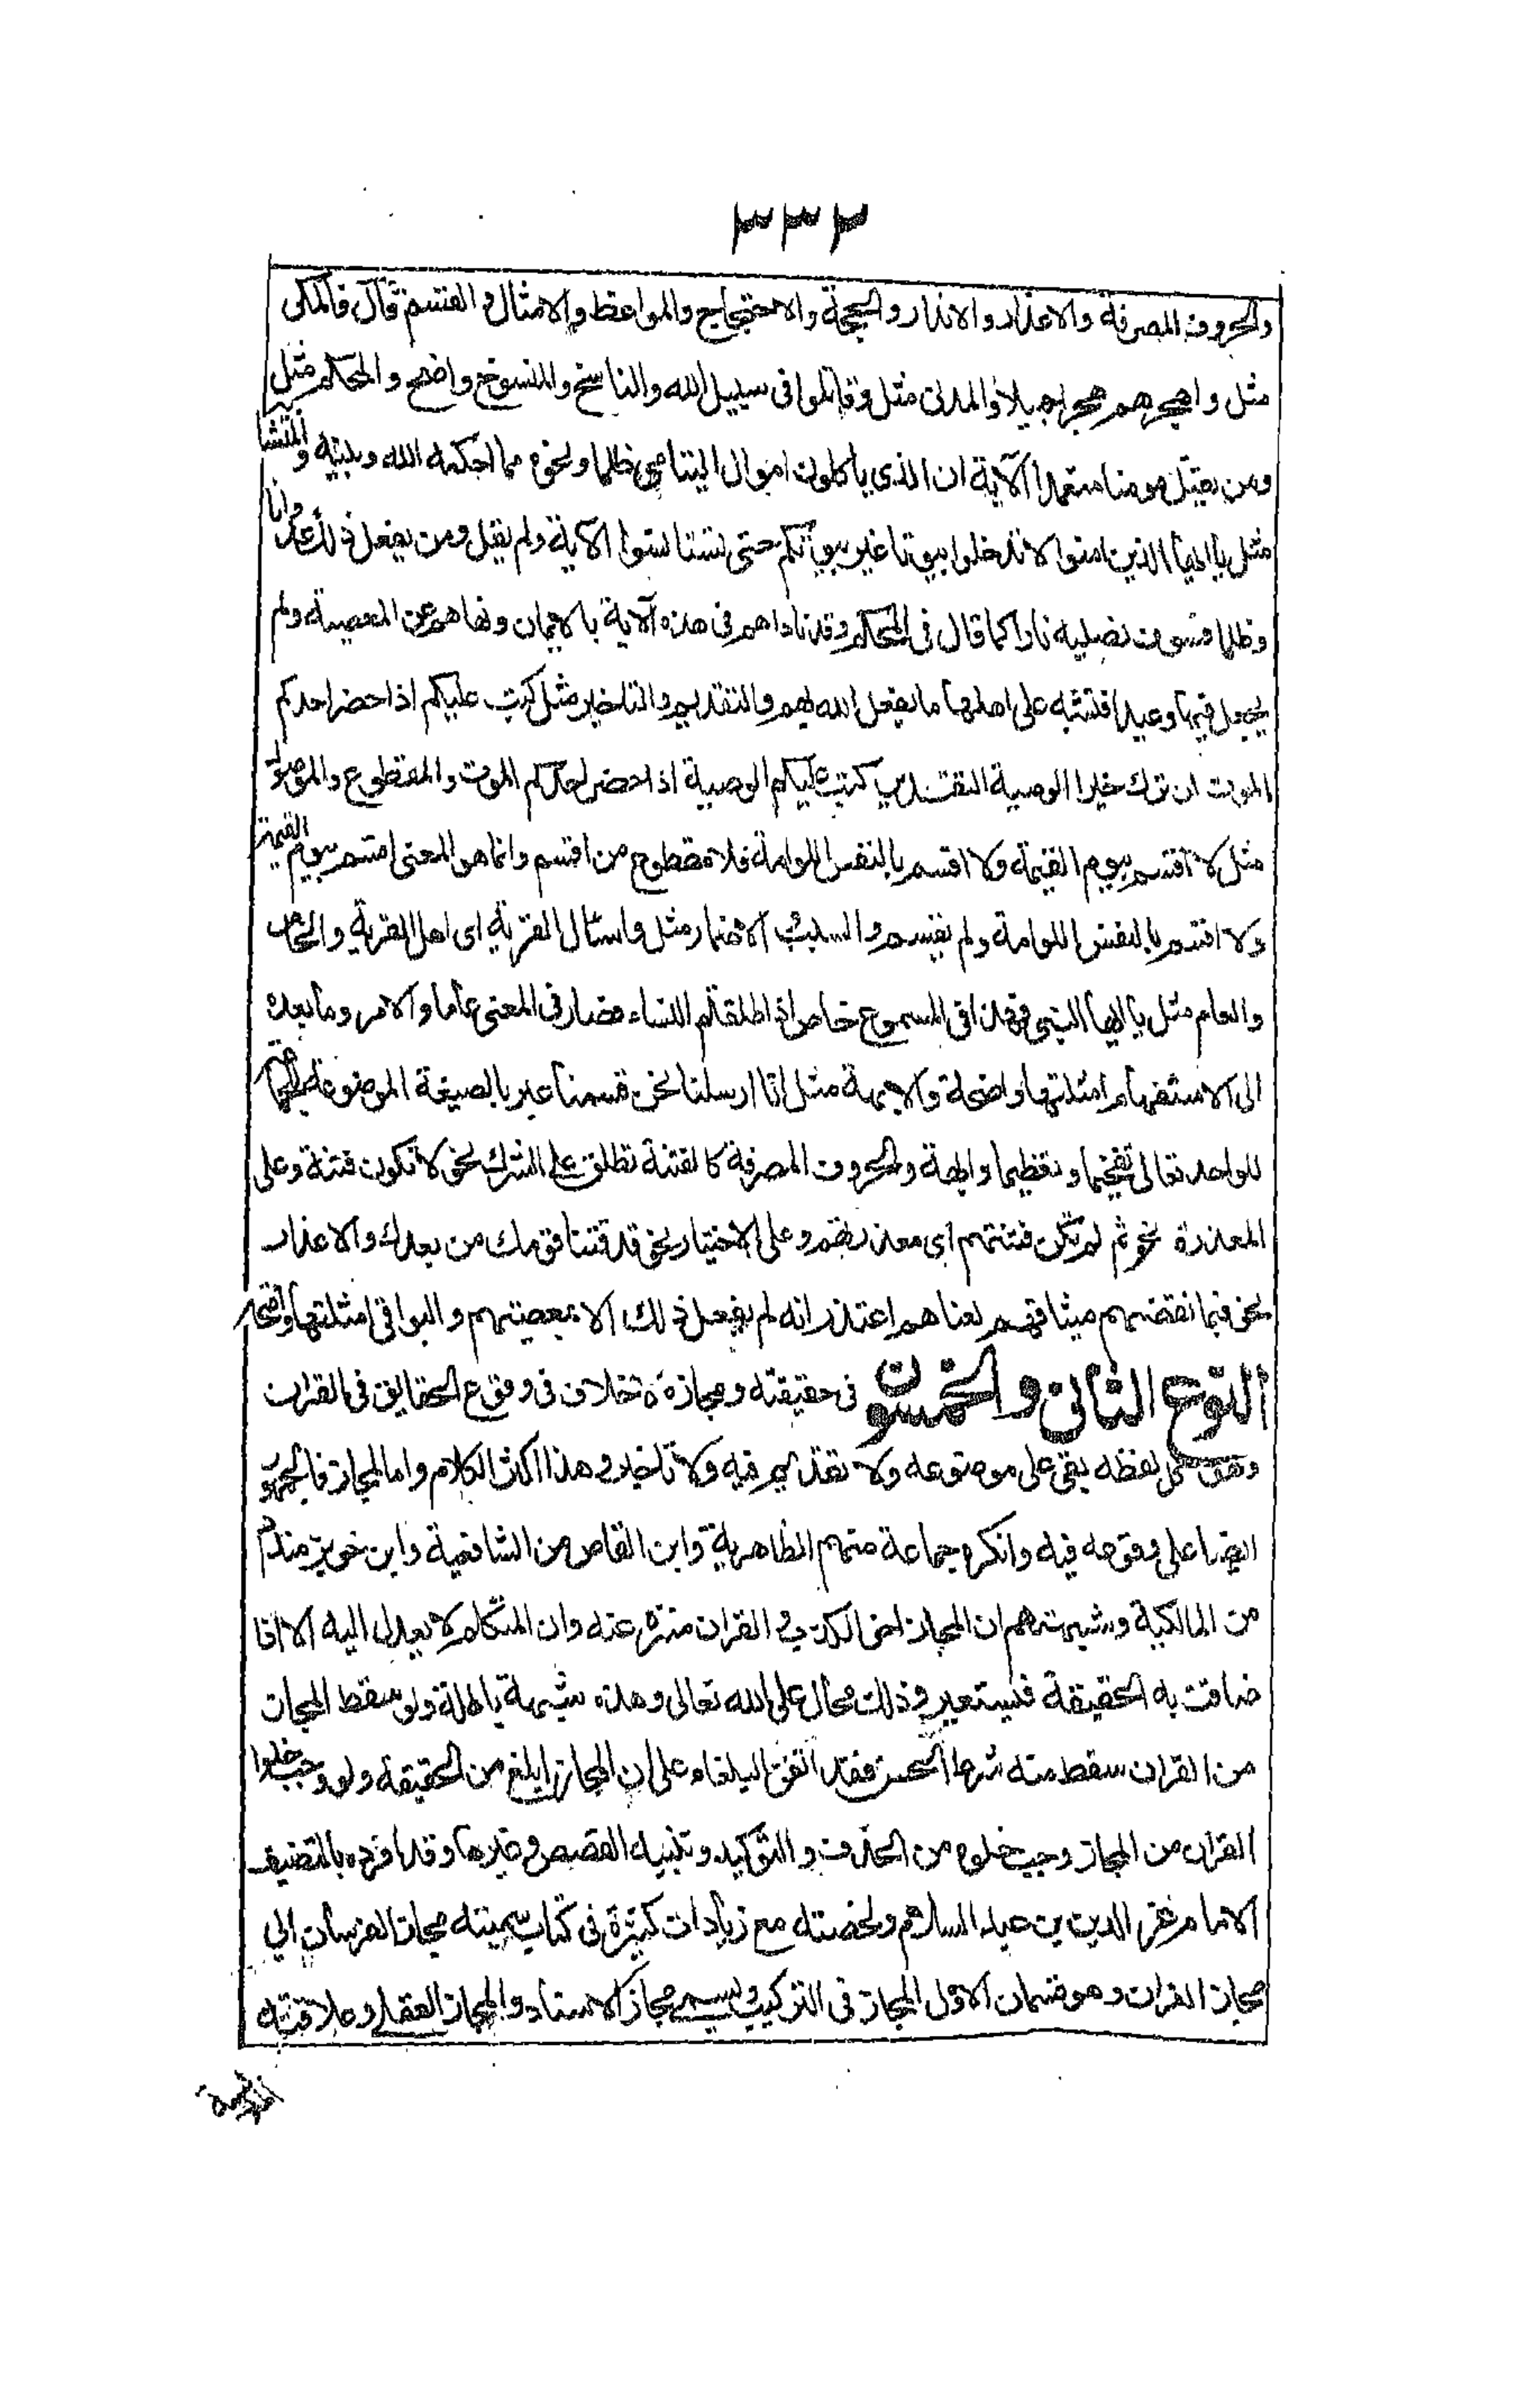 ٣٣٢
والحروف المصرفة والاعذار والانذار والحجة والاحتجاج والمواعظ والامثال والقسم قال فالمكى
مثل واهجرهم هجرا جميلا والمدنى مثل وقاتلوا فى سبيل الله والناسخ والمنسوخ واضح والمحكم مثل
ومن يقتل مومنا متعمدا الآية ان الذى ياكلون اموال اليتامى ظلما ونحوه مما احكمه الله وبينه والمتشا
مثل يا ايها الذين امنوا لا تدخلوا بيوتا غير بيوتكم حتى تستانسوا الآية ولم يقل ومن يفعل ذلك عدوانا
وظلما فسوف نصليه نارا كما قال فى المحكم وقد ناداهم فى هذه الآية بالايمان ونهاهم عن المعصية ولم
يجعل فيها وعيدا فاشتبه على اهلها ما يفعل الله بهم والتقديم والتاخير مثل كتب عليكم اذا حضر احدكم
الموت ان ترك خيرا الوصية التقدير كتب عليكم الوصية اذا حضر احدكم الموت والمقطوع والموصول
مثل لا اقسم بيوم القيمة ولا اقسم بالنفس اللوامة فلا مقطوع من اقسم وانما هو المعنى اقسم بيوم القيمة
ولا اقسم بالنفس اللوامة ولم يقسم والسبب الاضمار مثل واسئال القرية اى اهل القرية والخاص
والعام مثل يا ايها النبى فهذا فى المسموع خاص اذا طلقتم النساء فصار فى المعنى عاما والامر وما بعده
الى الاستفهام امثلتها واضحة والابهة مثل انا ارسلنا نحن قسمنا عبر بالصيغة الموضوعة للجماعة
للواحد تعالى تفخيما وتعظيما وابهة والحروف المصرفة كالفتنة تطلق على الشرك نحو لا تكون فتنة وعلى
المعذرة نحو ثم لم تكن فتنتهم اى معذرتهم وعلى الاختبار نحو قد فتنا قومك من بعدك والاعذار
نحو فبما نقضهم ميثاقهم لعناهم اعتذر انه لم يفعل ذلك الا بمعصيتهم والبواقى امثلتها واضحة
النوع الثانى والخمسون فى حقيقته ومجازه لا خلاف فى وقوع الحقايق فى القران
وهى كل لفظه بقى على موضوعه ولا تقديم فيه ولا تاخير وهذا اكثر الكلام واما المجاز فالجمهور
ايضا على وقوعه فيه وانكره جماعة منهم الظاهرية وابن القاص من الشافعية وابن خويز منداد
من المالكية وشبهتهم ان المجاز اخو الكذب والقران منزه عنه وان المتكلم لا يعدل اليه الا اذا
ضاقت به الحقيقة فيستعير وذلك محال على الله تعالى وهذه شبهة باطلة ولو سقط المجاز
من القران سقط منه شطر الحسن فقد اتفق البلغاء على ان المجاز ابلغ من الحقيقة ولو وجب خلوا
القران من المجاز وجب خلوه من الحذف والتوكيد وتثنيه القصص وغيرها وقد افرده بالتصنيف
الامام عز الدين بن عبد السلام ولخصته مع زيادات كثيرة فى كتاب سميته مجاز الفرسان الى
مجاز القران وهو قسمان الاول المجاز فى التركيب ويسمى مجاز الاسناد والمجاز العقلى وعلاقته